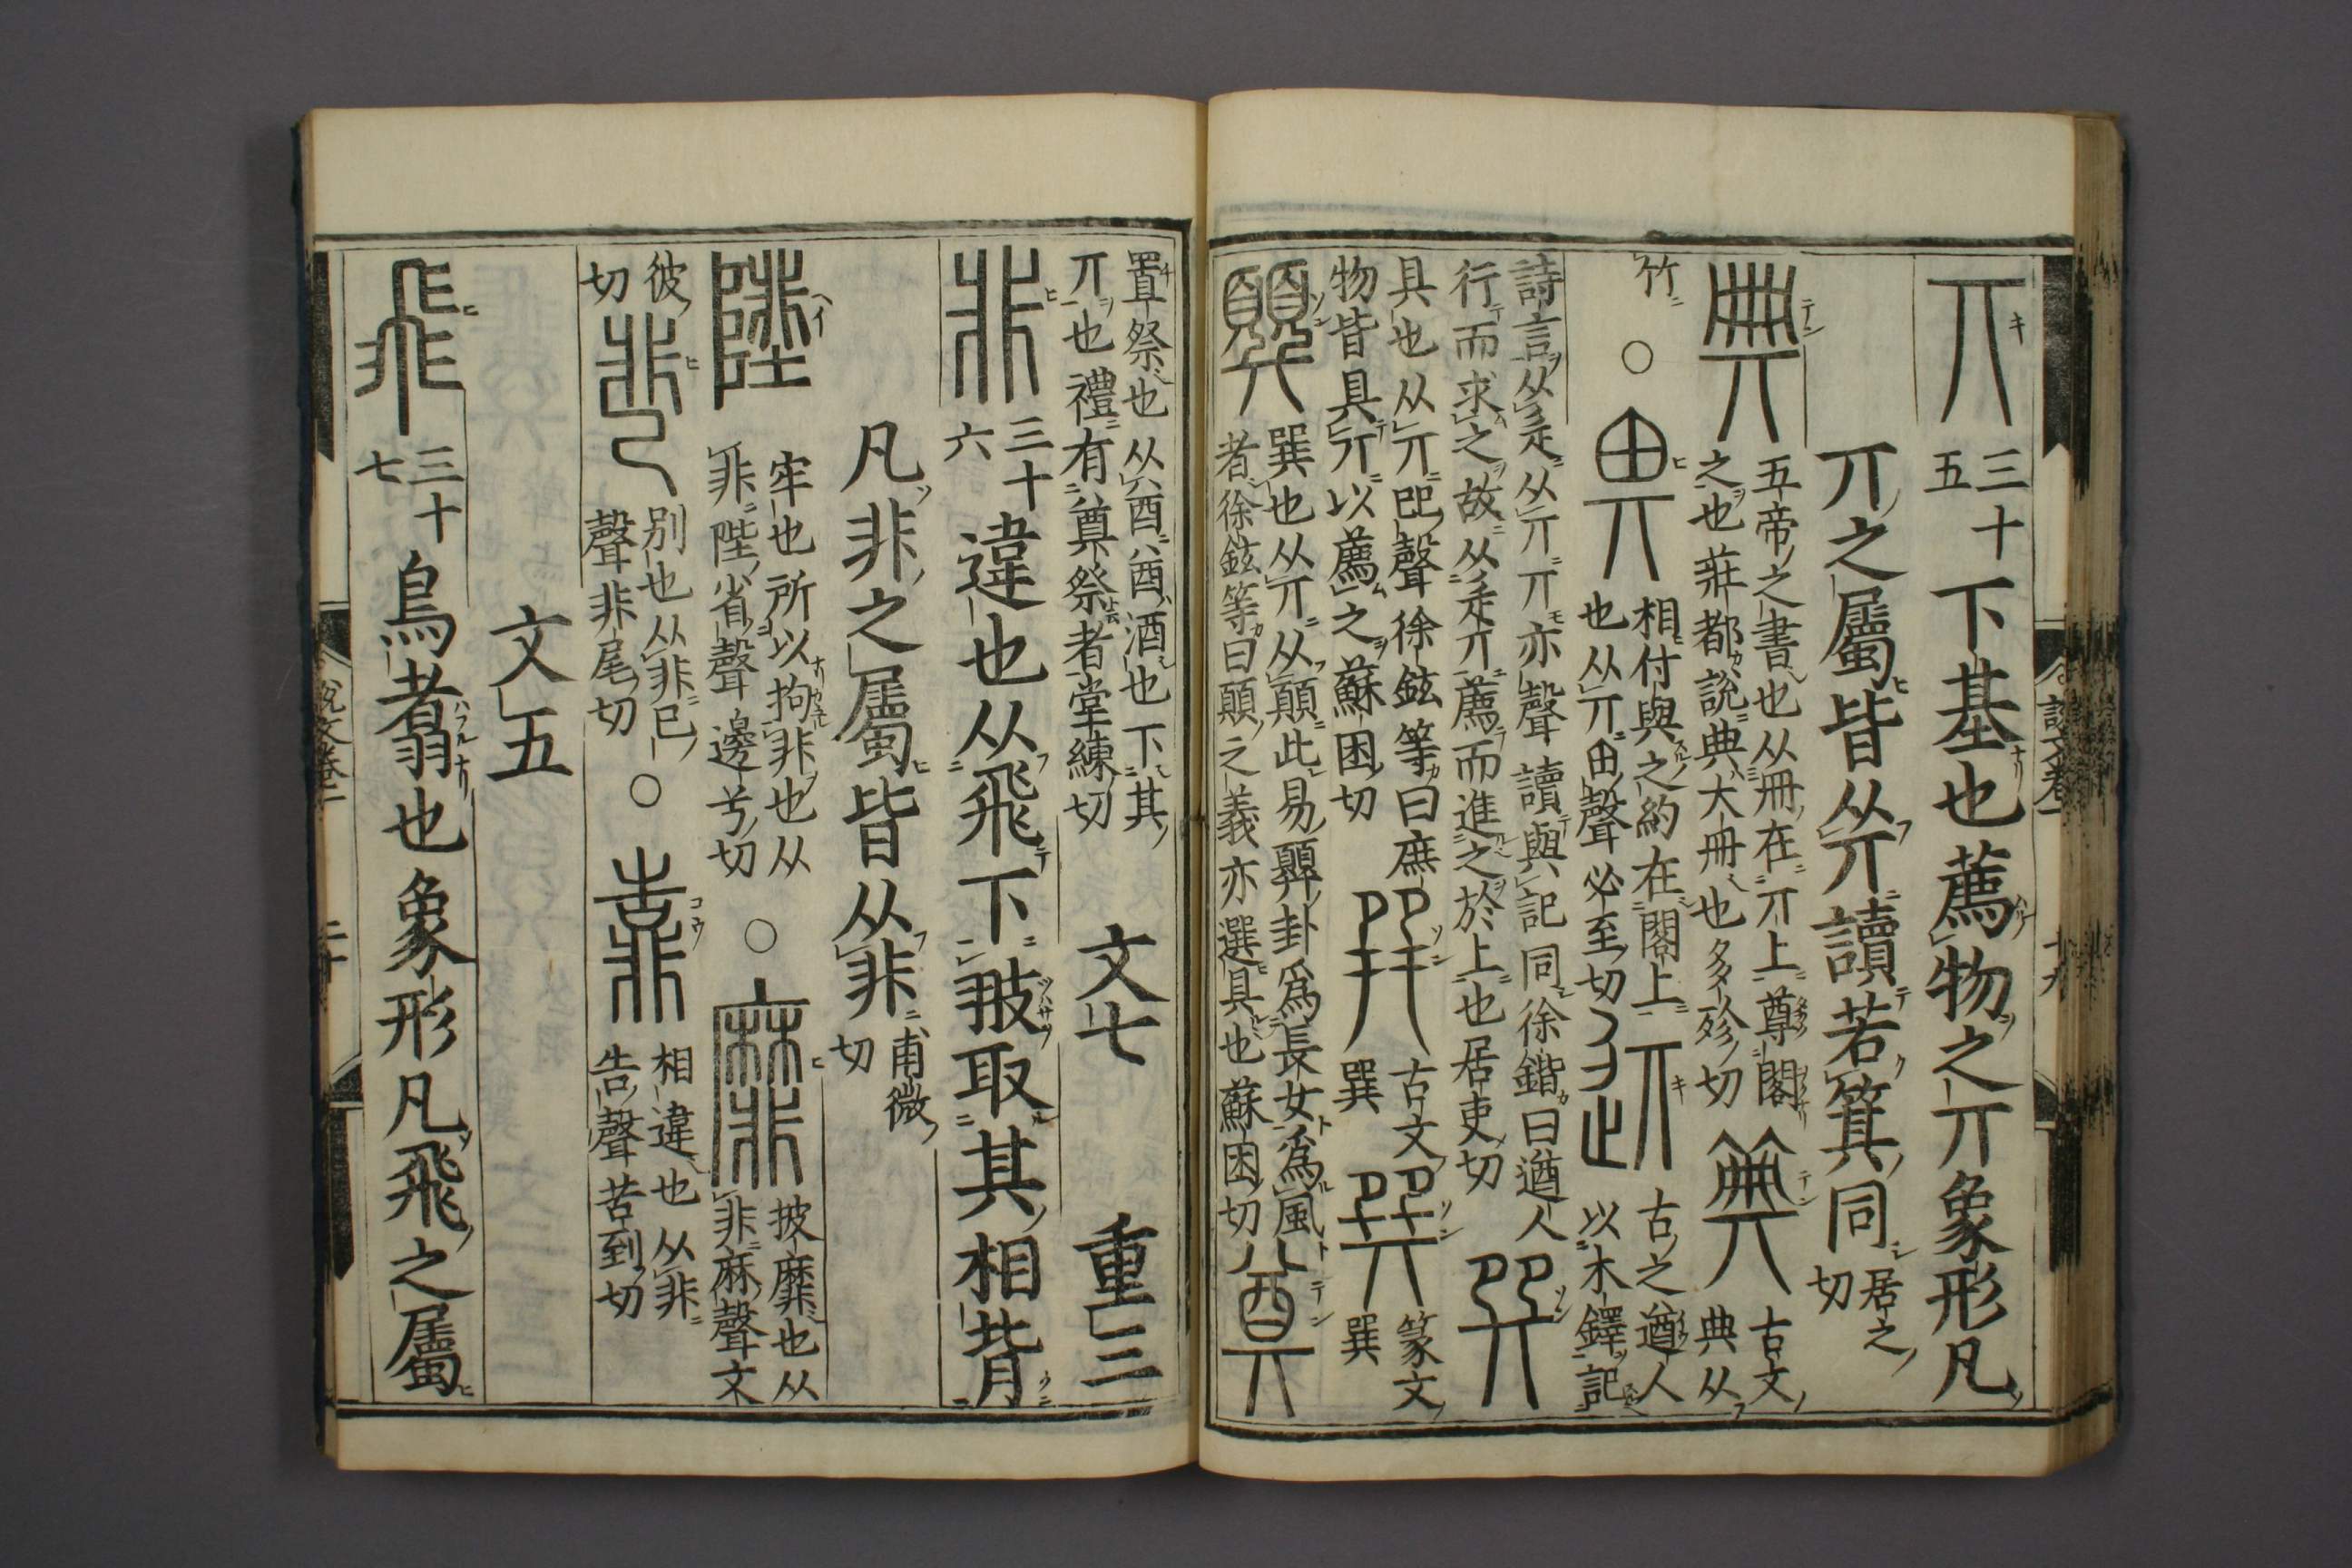 丌三十五下基也薦物之丌象形凡
丌之屬皆从丌讀若箕同居之切
典五帝之書也从冊在丌上尊閣
之也莊都說典大冊也多殄切
古文
典从
竹○畀相付與之約在閣上
也从丌甶聲必至切
古之遒人
以木鐸記
詩言从辵从丌丌亦聲讀與記同徐鍇曰遒人
行而求之故从辵丌薦而進之於上也居吏切
具也从丌㔾聲徐鉉等曰庶
物皆具丌以薦之蘇困切
古文
巽
篆文
巽
顨巽也从丌从顛此易顨卦爲長女爲風
者徐鉉等曰顛之義亦選具也蘇困切
奠
置祭也从酋酋酒也下其
丌也禮有奠祭者堂練切
文七 重三
非三十六違也从飛下翄取其相背
凡非之屬皆从非甫微切
陛牢也所以拘非也从
非陛省聲邊兮切
○靡披靡也从
非麻聲文
彼
切
別也从非己
聲非尾切
○靠相違也从非
告聲苦到切
文五
飛三十七鳥翥也象形凡飛之屬